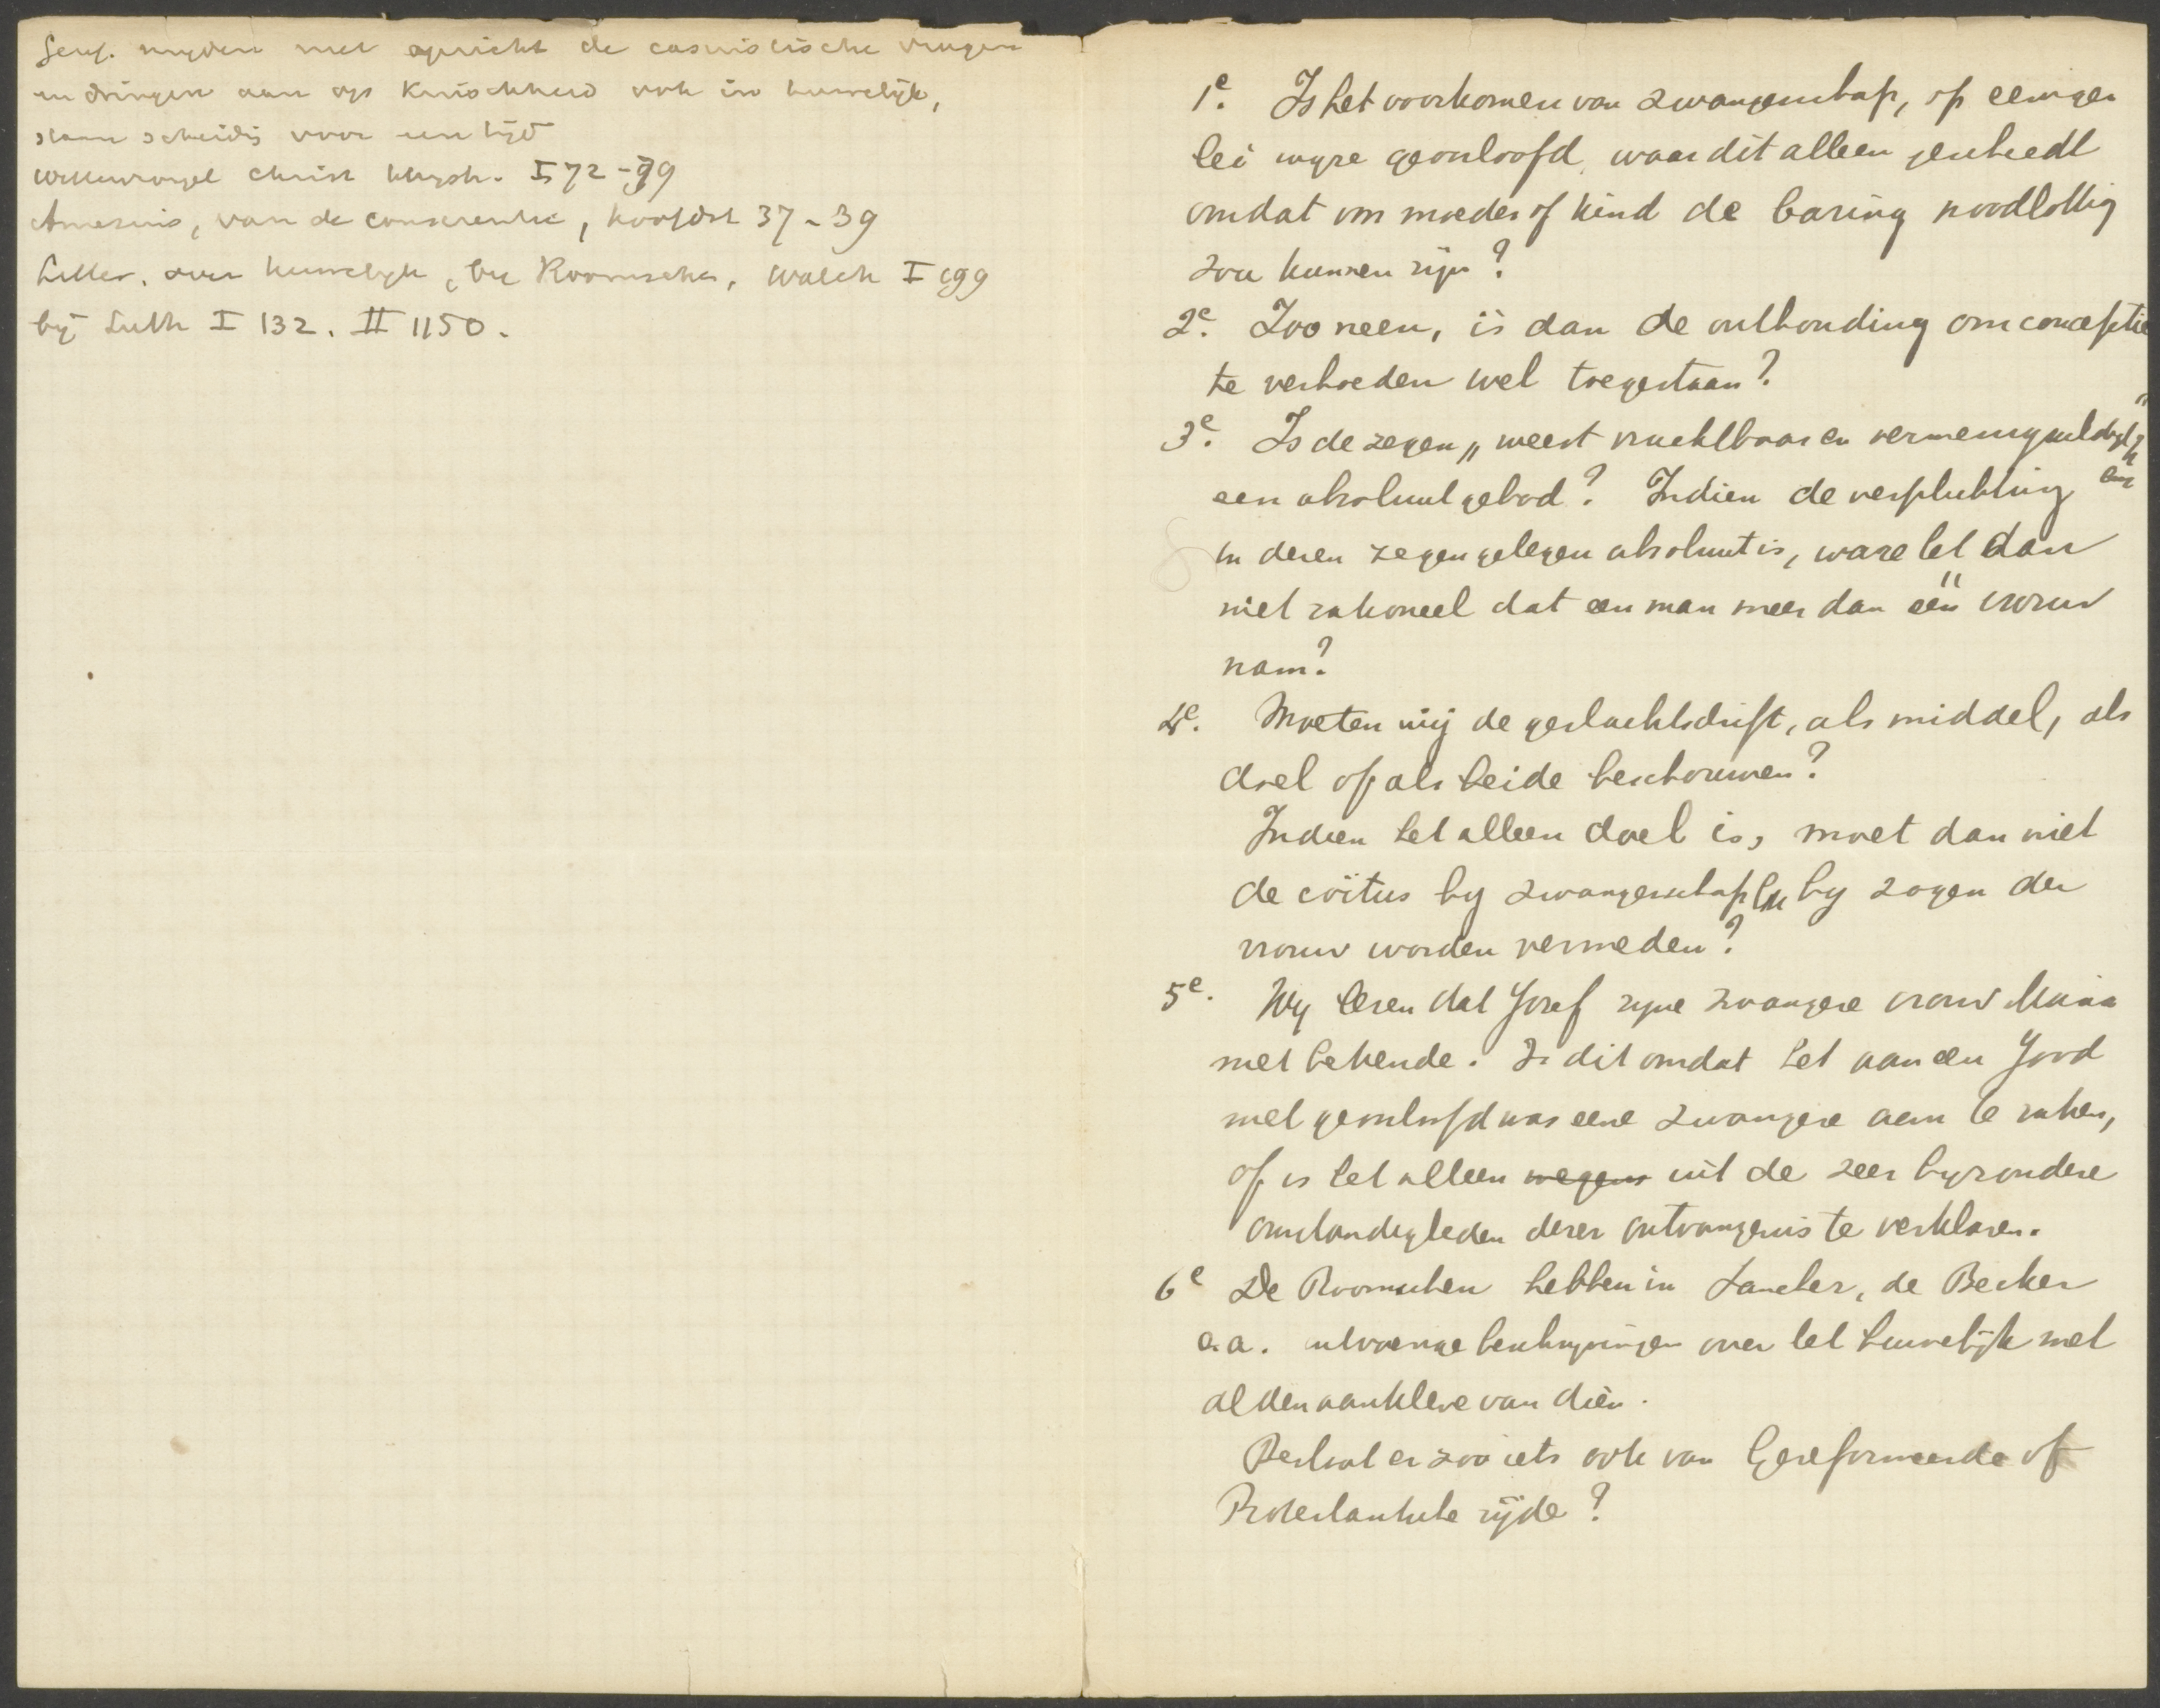 Geref. mijden met opzicht de casuistische vragen
en dringen aan op kuischheid ook in huwelijk,
staan scheidg voor een tijd
Wittewrongel Christ. Huysh. I 72-79
Amesius, van de conscientie, hoofdst 37-39
Litter. over huwelijk, bij Roomschen, Walch I 199
bij Luth I 132. II 1150.
1e. Is het voorkomen van zwangerschap, op eeniger
lei wyze geoorloofd, waar dit alleen geschiedt
omdat om moeder of kind de baring noodlottig
zou kunnen zijn?
2e. Zoo neen, is dan de onthouding om conceptie
te verhoeden wel toegestaan?
3e. Is de zegen „weest vruchtbaar en vermenigvuldigt"
een absoluut gebod? Indien de verplichting
in dezen zegen gelegen absoluut is, ware het dan
niet rationeel dat een man meer dan één vrouw
nam?
4e. Moeten wij de geslachtsdrift, als middel, als
doel of als beide beschouwen?
Indien het alleen doel is, moet dan niet
de coïtus by zwangerschap en by zogen der
vrouw worden vermeden?
5e. Wy lezen dat Jozef zyne zwangere vrouw Maria
niet bekende. Is dit omdat het aan een Jood
niet geoorloofd was eene zwangere aan te raken,
of is het alleen wegens uit de zeer byzondere
omstandigheden dezer ontvangenis te verklaren.
6e De Roomschen hebben in Sanchez, de Becker
e.a. uitvoerige beschryvingen over het huwelijk met
al den aankleve van dien.
Bestaat er zoo iets ook van Gereformeerde of
Protestantsche zijde?